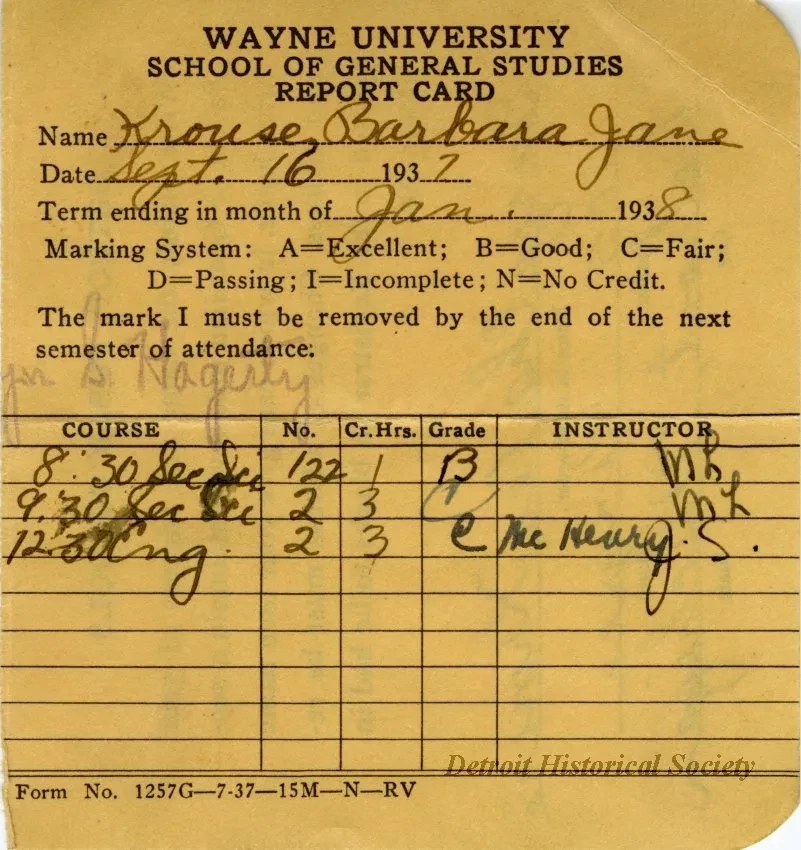 WAYNE UNIVERSITY
SCHOOL OF GENERAL STUDIES
REPORT CARD
Name Krouse, Barbara Jane
Date Sept. 16 1937
Term ending in month of Jan. 1938
Marking System: A=Excellent; B=Good; C=Fair;
D=Passing; I=Incomplete; N=No Credit.
The mark I must be removed by the end of the next
semester of attendance.
Hagerty
COURSE No. Cr.Hrs. Grade INSTRUCTOR
8:30 Sec Sci 122 1 B ML
9:30 Sec Sci 2 3 ML
12:30 Eng. 2 3 C Mc Henry J.S.
Detroit Historical Society
Form No. 1257G—7-37—15M—N—RV